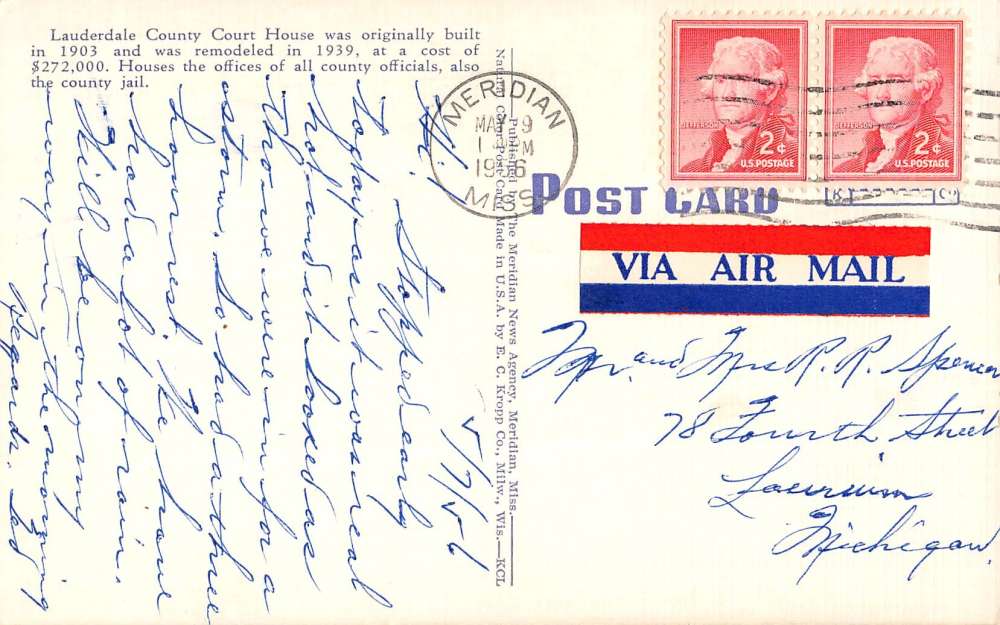 Lauderdale County Court House was originally built
in 1903 and was remodeled in 1939, at a cost of
$272,000. Houses the offices of all county officials, also
the county jail.
5/7/56
Hi, Stopped early
today as it was real
hot and it looked as
tho we were in for a
storm. So had a three
hour rest. We have
had a lot of rain.
Will be on my
way in the morning
Regards.
—Published by The Meridian News Agency, Meridian, Miss.—
Natural Color Post Card Made in U.S.A. by E. C. Kropp Co., Milw., Wis.—KCL
MERIDIAN
MAY 9
PM
1956
MISS.
JEFFERSON
2¢
U.S. POSTAGE
JEFFERSON
2¢
U.S. POSTAGE
POST CARD
VIA AIR MAIL
Mr. and Mrs R. R. Spencer
78 Fourth Street
Laurium
Michigan.